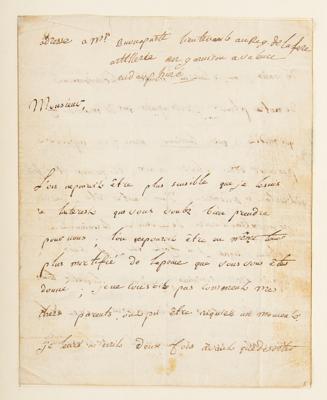 adresse a Mr Buonaparte lieutenant au Reg de la fere
artillerie en garnison a valence
en dauphiné
Monsieur
L'on ne peut être plus sensible que je le suis
a l'interest que vous voulez bien prendre
pour nous, l'on ne peut être en même
plus mortifié de la peine que vous vous êtes
donné, je ne conçois pas comment me
chers parents, ont pu être un moment
je leurs écrit deux fois